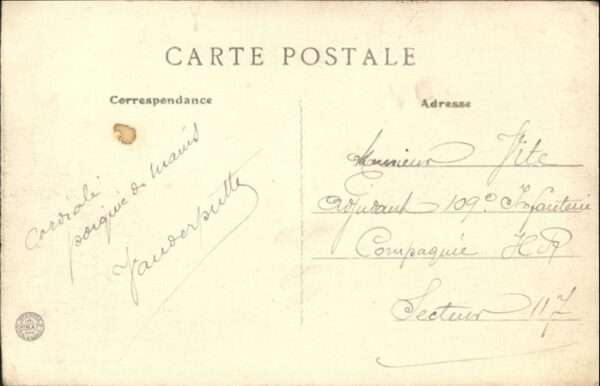 CARTE POSTALE
Correspondance
Adresse
Cordiale
poignée de mains
Vanderputte
Monsieur Vite
Adjudant 109e Infanterie
Compagnie H R
Secteur 117